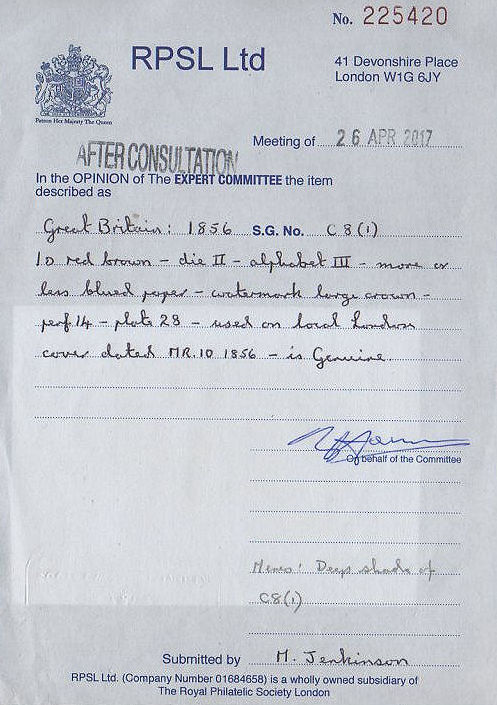 No. 225420
RPSL Ltd
41 Devonshire Place
London W1G 6JY
Patron Her Majesty The Queen
Meeting of 26 APR 2017
AFTER CONSULTATION
In the OPINION of The EXPERT COMMITTEE the item
described as
Great Britain: 1856 S.G. No. C8(1)
1D red brown - die II - alphabet III - more or
less blued paper - watermark large crown -
perf 14 - plate 28 - used on local London
cover dated MR.10 1856 - is Genuine.
On behalf of the Committee
Memo: Deep shade of
C8(1)
Submitted by M. Jenkinson
RPSL Ltd. (Company Number 01684658) is a wholly owned subsidiary of
The Royal Philatelic Society London